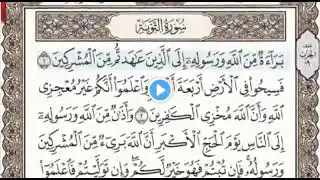 سُورَةُ التَّوْبَةِ
بَرَاءَةٌ مِّنَ اللَّهِ وَرَسُولِهِ إِلَى الَّذِينَ عَاهَدتُّم مِّنَ الْمُشْرِكِينَ ١
فَسِيحُوا فِي الْأَرْضِ أَرْبَعَةَ وَاعْلَمُوا أَنَّكُمْ غَيْرُ مُعْجِزِي
اللَّهِ وَأَنَّ اللَّهَ مُخْزِي الْكَافِرِينَ ٢ وَأَذَانٌ مِّنَ اللَّهِ وَرَسُولِهِ
إِلَى النَّاسِ يَوْمَ الْحَجِّ الْأَكْبَرِ أَنَّ اللَّهَ بَرِيءٌ مِّنَ الْمُشْرِكِينَ
وَرَسُولُهُ فَإِن تُبْتُمْ فَهُوَ خَيْرٌ لَّكُمْ وَإِن تَوَلَّيْتُمْ فَاعْلَمُوا